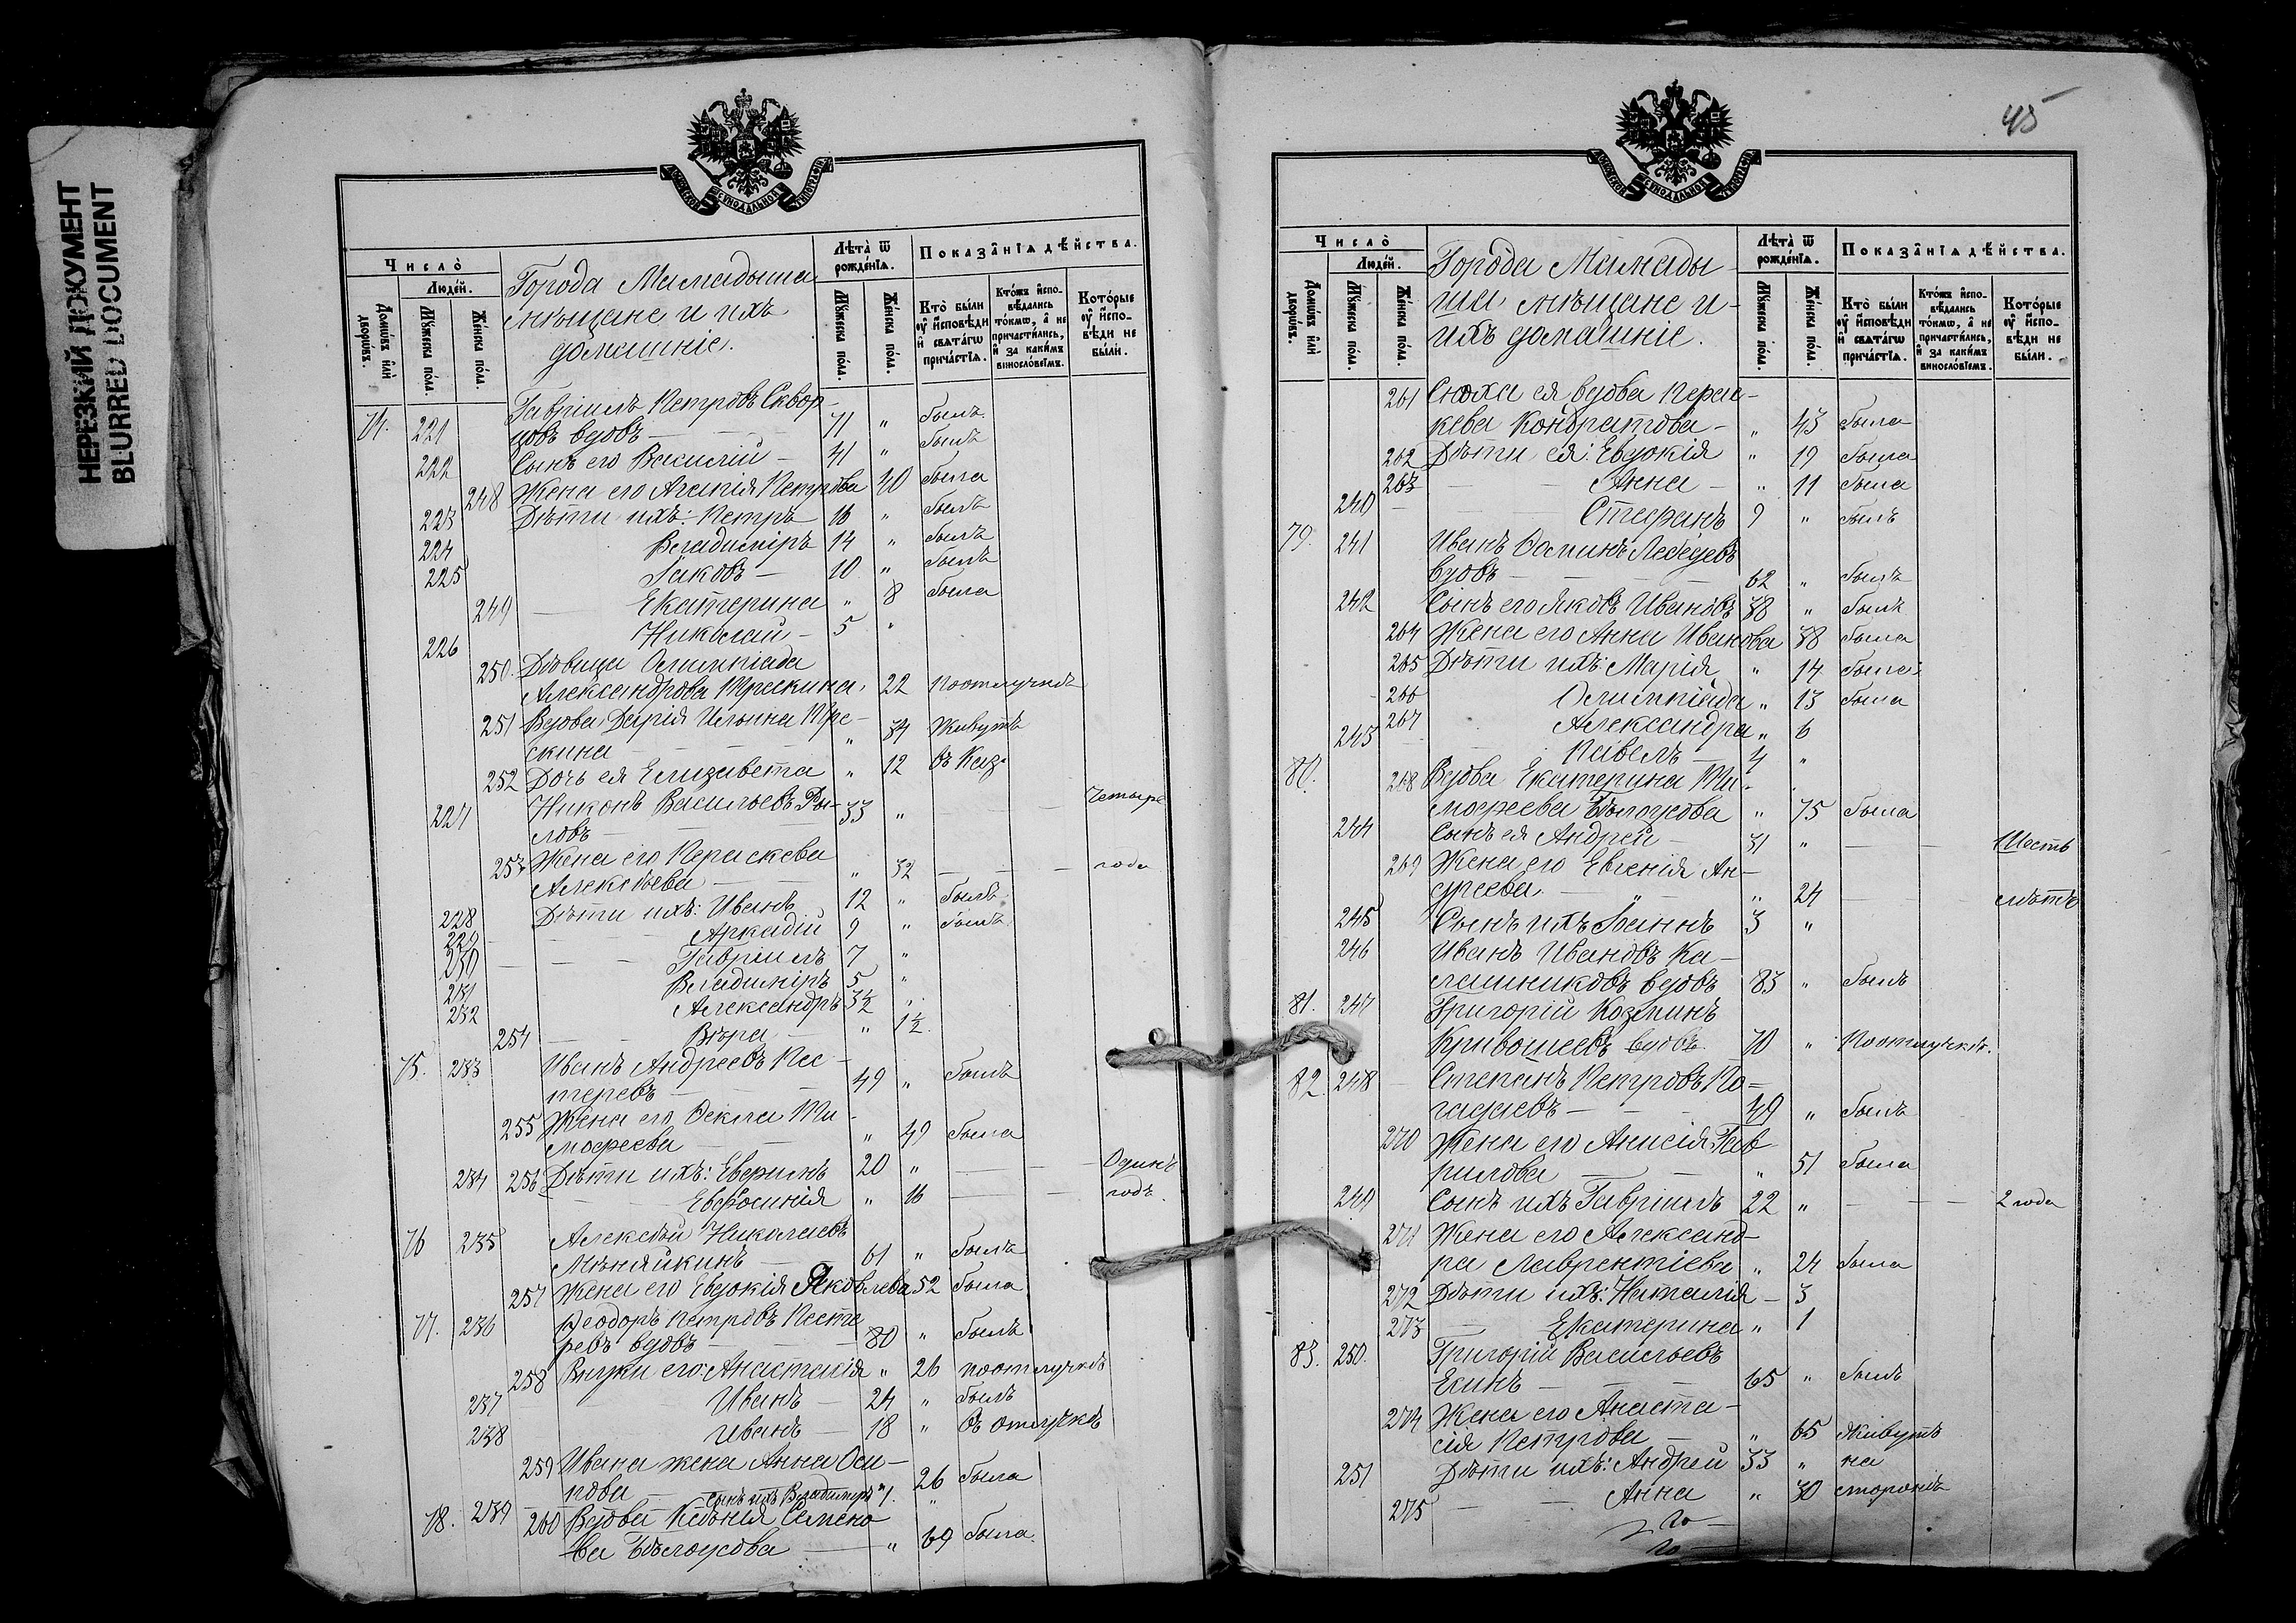 НЕРЕЗКИЙ ДОКУМЕНТ
BLURRED DOCUMENT
МОСКОВСКОЙ СѴНОДАЛЬНОЙ ТИПОГРАФІИ
Число̀
Домѡ́въ и҆лѝ дворѡ́въ.
Люде́й.
Мꙋ́жеска по́ла.
Же́нска по́ла.
Города Мамадыша
мѣщане и ихъ
домашніе.
Лѣта̀ ѿ рожде́нїѧ.
Мꙋ́жеска по́ла.
Же́нска по́ла.
Показа̑нїѧ дѣ́йства.
Кто̀ бы́ли ᲂу҆ и҆сповѣ́ди и҆ свѧта́гѡ прича́стїѧ.
Кто́жъ и҆сповѣ́дались то́кмѡ, а҆ не причасти́лись, и҆ за каки́мъ винословїемъ.
Кото́рые ᲂу҆ и҆сповѣ́ди не бы́ли.
74. 221 Гавріилъ Петровъ Сквор-
цовъ вдовъ — 71 " былъ
222 Сынъ его Василій — 41 " былъ
248 Жена его Агапія Петрова 40 была
223 Дѣти ихъ: Петръ 16 " былъ
224 Владиміръ 14 " былъ
225 Іаковъ — 10 " былъ
249 Екатерина " 8 была
226 Николай — 5 "
250. Дѣвица Олимпіада
Александрова Трескина, 22 по отлучкѣ
251 Вдова Дарія Ильина Тре-
скина " 34 Живутъ
252 Дочь ея Елизавета " 12 въ Каз.
227 Никонъ Васильевъ Ры-
ловъ 33 " — Четыре
253 Жена его Параскева
Алексѣева " 32 — года
228 Дѣти ихъ: Иванъ 12 " былъ
229 Аркадій 9 " былъ
230 Гавріилъ 7 "
231 Владиміръ 5 "
232 Александръ 3½ "
254 Вѣра " 1½.
75. 233 Иванъ Андреевъ Пес-
теревъ 49 " былъ
255 Жена его Ѳекла Ти-
моѳеева " 49 была
234 256 Дѣти ихъ: 20 " — Одинъ
Евфросинія " 16 — годъ.
76 235 Алексѣй Николаевъ
Мѣняйкинъ 61 " былъ
257 Жена его Евдокія Яковлева 52 была
77. 236 Ѳеодоръ Петровъ Песте
ревъ вдовъ 80 " былъ
258 Внуки его: Анастасія " 26 по отлучкѣ
237 Иванъ — 24 " былъ
238 Иванъ — 18 " въ отлучкѣ
259 Ивана жена Анна Оси-
пова — 26 была
239 сынъ ихъ Владиміръ 1.
78. 260 Вдова Ксенія Семено
ва Бѣлоусова — " 69 была
45
МОСКОВСКОЙ СѴНОДАЛЬНОЙ ТИПОГРАФІИ
Число̀
Домѡ́въ и҆лѝ дворѡ́въ.
Люде́й.
Мꙋ́жеска по́ла.
Же́нска по́ла.
Города Мамады-
ша, мѣщане и-
ихъ домашніе.
Лѣта̀ ѿ рожде́нїѧ.
Мꙋ́жеска по́ла.
Же́нска по́ла.
Показа̑нїѧ дѣ́йства.
Кто̀ бы́ли ᲂу҆ и҆сповѣ́ди и҆ свѧта́гѡ прича́стїѧ.
Кто́жъ и҆сповѣ́дались то́кмѡ, а҆ не причасти́лись, и҆ за каки́мъ винословїемъ.
Кото́рые ᲂу҆ и҆сповѣ́ди не бы́ли.
261 Сноха ея вдова Парас-
кева Кондратова — " 43 была
262 Дѣти ея: Евдокія " 19 была
263 Анна — " 11 была
240 Стефанъ 9 " былъ
79. 241 Иванъ Ѳоминъ Лебедевъ
вдовъ — 62 " былъ
242 Сынъ его Яковъ Ивановъ 38 " былъ
264 Жена его Анна Иванова 38 была
265 Дѣти ихъ: Марія " 14 была
266 Олимпіада " 13 была
267 Александра " 6
243 Павелъ — 4 "
80. 268 Вдова Екатерина Ти-
моѳеева Бѣлоусова " 75 была
244 Сынъ ея Андрей — 31 " — Шесть
269 Жена его Евгенія Ан-
дреева " 24 — лѣтъ
245 Сынъ ихъ Іоаннъ 3 "
246 Иванъ Ивановъ Ка-
лашниковъ вдовъ 83 " былъ
81. 247 Григорій Козминъ
Кривошеевъ вдовъ 70 " По отлучкѣ.
82. 248 Степанъ Петровъ По-
гадаевъ — 49 " былъ
270 Жена его Анисія Гав
рилова " 51 была
249 Сынъ ихъ Гавріилъ 22 " — 2 года
271 Жена его Александ-
ра Лаврентіева " 24 была
272 Дѣти ихъ: Наталія — 3
273 Екатерина " 1
83. 250. Григорій Васильевъ
Екинъ — 65 " былъ
274 Жена его Анаста-
сія Петрова " 65 Живутъ
251 Дѣти ихъ: Андрей 33 " на
275 Анна " 30 сторонѣ